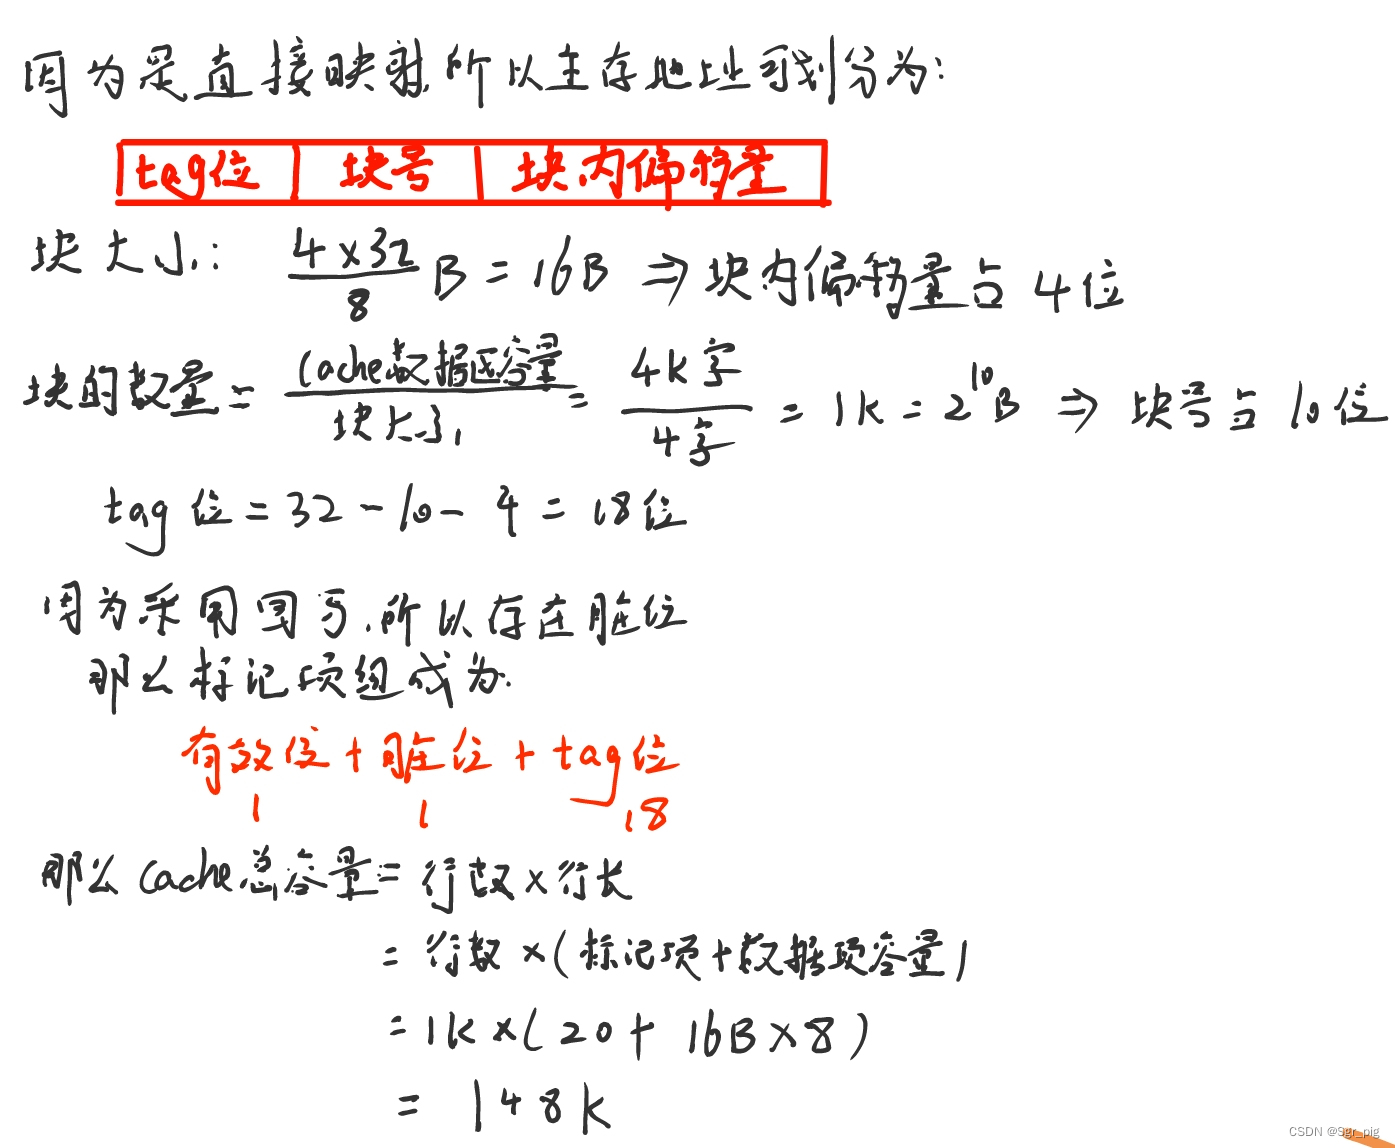 因为是直接映射,所以主存地址可划分为:
tag位 块号 块内偏移量
块大小: 4×32/8 B = 16B ⇒ 块内偏移量占 4位
块的数量 = Cache数据区容量/块大小 = 4K字/4字 = 1K = 2^10 B ⇒ 块号占 10位
tag 位 = 32 - 10 - 4 = 18位
因为采用回写,所以存在脏位
那么标记项组成为.
有效位 + 脏位 + tag位
1 1 18
那么 Cache总容量 = 行数 × 行长
= 行数 × (标记项 + 数据项容量)
= 1K × (20 + 16B × 8)
= 148K
CSDN @Sgr_pig